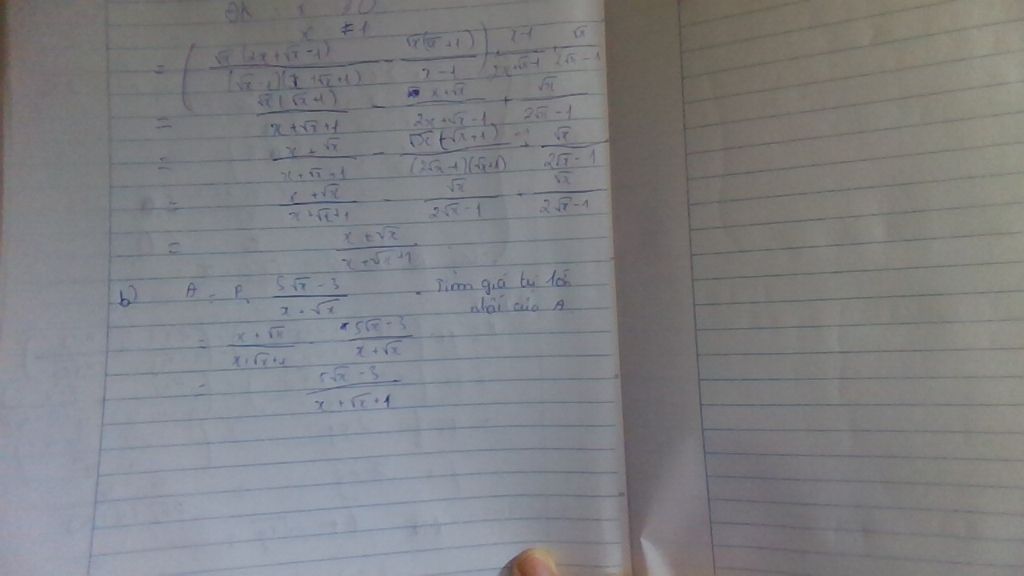 ĐK x ≥ 0
x ≠ 1
= ( √x(2x+√x-1) / (√x-1)(x+√x+1) - √x(√x+1) / x-1 ) · x-1 / 2x+√x-1 + √x / 2√x-1
= √x(√x+1) / x+√x+1 - x+√x / 2x+√x-1 + √x / 2√x-1
= x+√x / x+√x+1 - √x(√x+1) / (2√x-1)(√x+1) + √x / 2√x-1
= x+√x / x+√x+1 - √x / 2√x-1 + √x / 2√x-1
= x+√x / x+√x+1
b) A = P. 5√x-3 / x+√x - Tìm giá trị lớn
nhất của A
= x+√x / x+√x+1 . 5√x-3 / x+√x
= 5√x-3 / x+√x+1